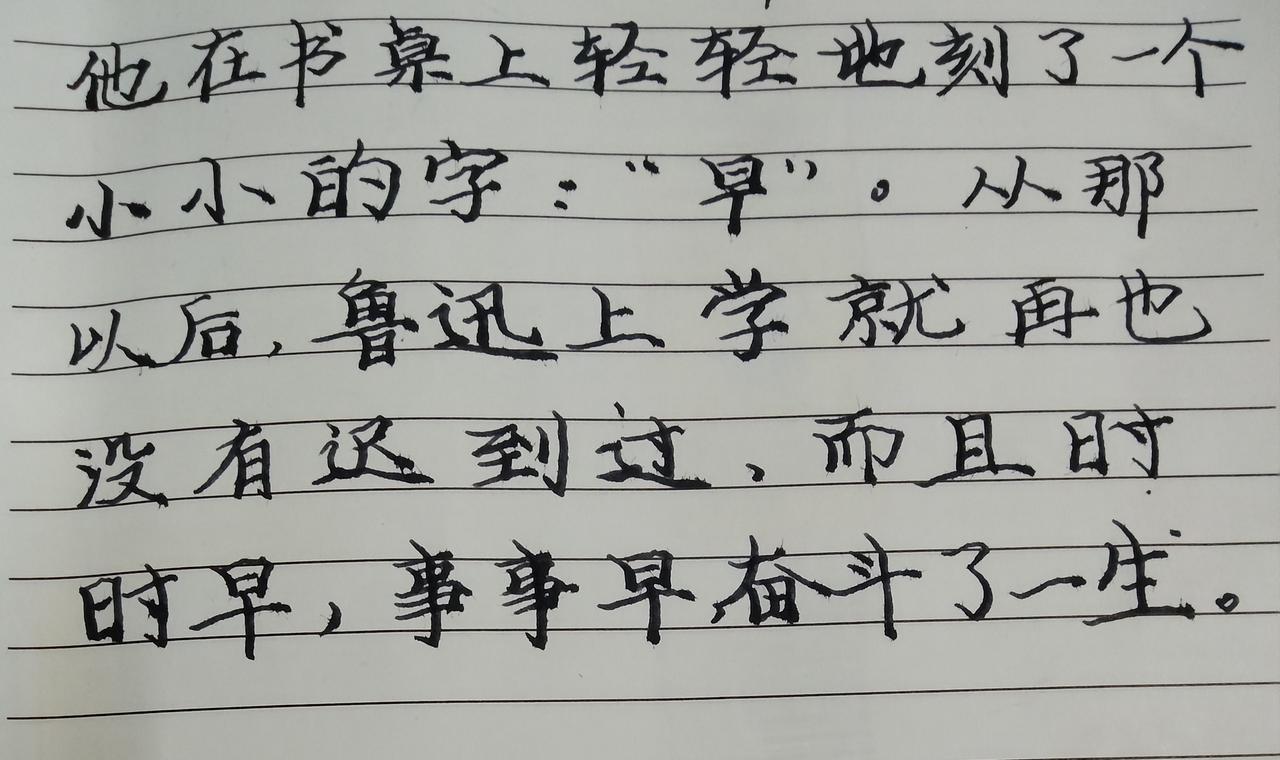 他在书桌上轻轻地刻了一个
小小的字：“早”。从那
以后，鲁迅上学就再也
没有迟到过、而且时
时早，事事早，奋斗了一生。